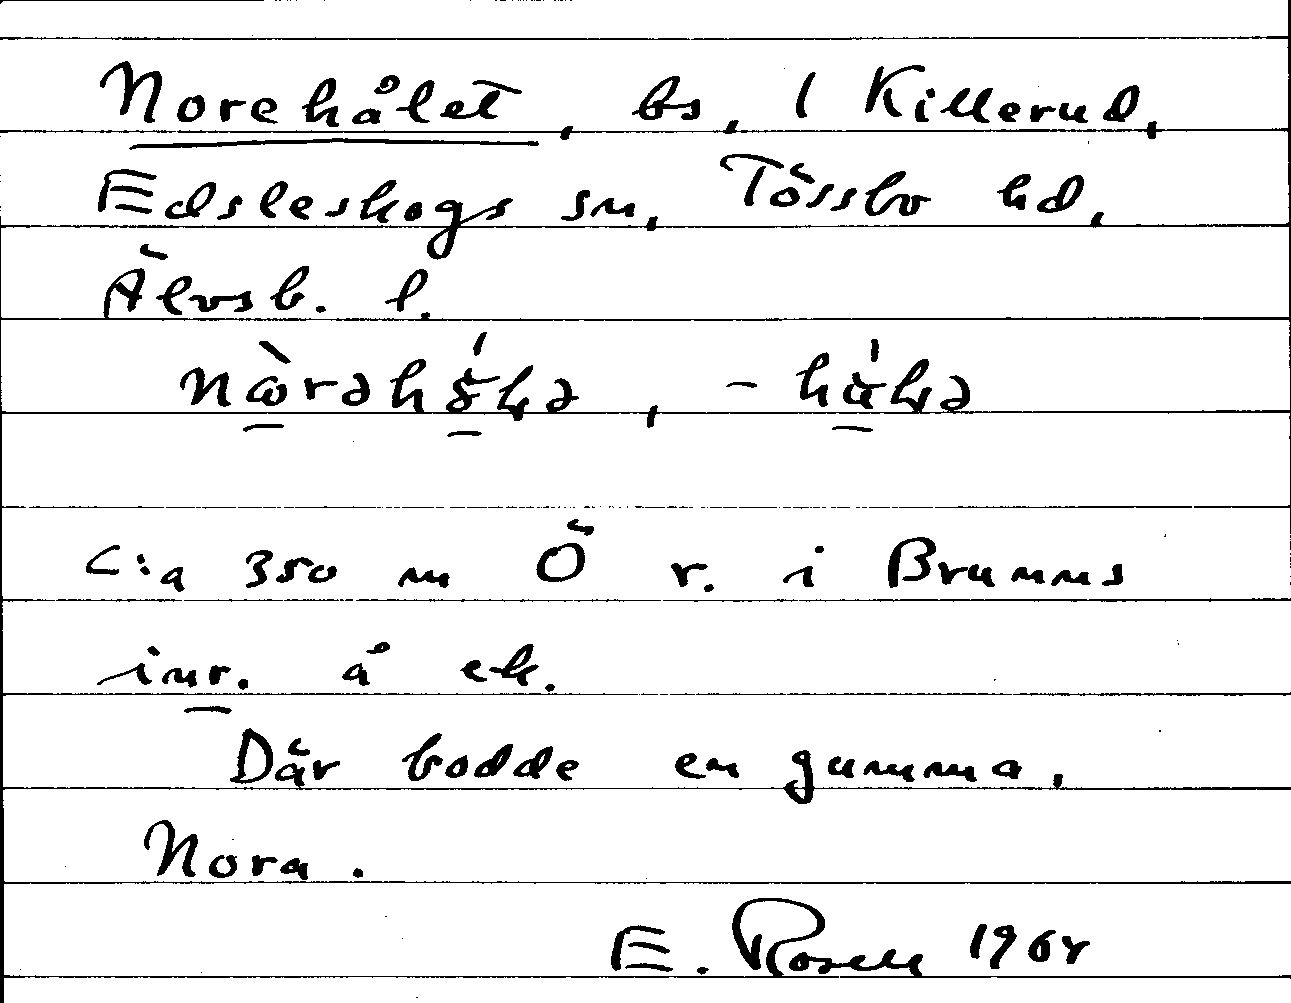 Norehålet, bs, 1 Killerud,
Edsleskogs sn, Tössbo hd,
Älvsb. l.
C:a 350 m Ö r. i Brunns
inr. å ek.
Där bodde en gumma,
Nora.
E. Rosell 1968